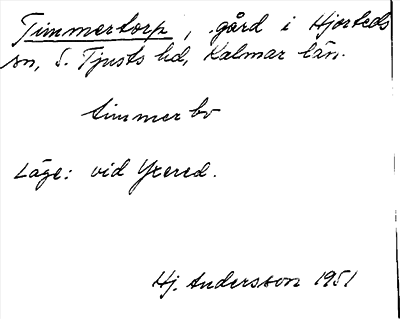 Timmertorp, gård i Hjorteds
sn, S. Tjusts hd, Kalmar län.
timmer bo
Läge: vid Yxered.
Hj. Andersson 1951